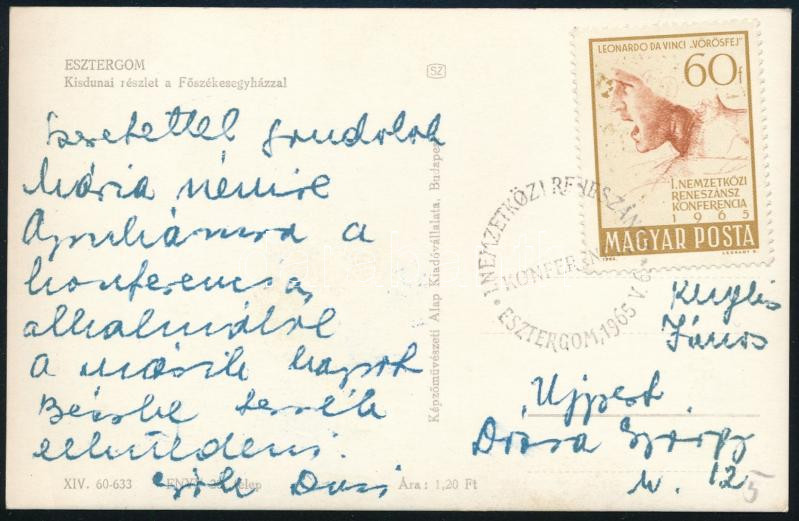 ESZTERGOM
Kisdunai részlet a Főszékesegyházzal
SZ
LEONARDO DA VINCI „VÖRÖSFEJ”
60f
I. NEMZETKÖZI
RENESZÁNSZ
KONFERENCIA
1965
MAGYAR POSTA
I. NEMZETKÖZI RENESZÁNSZ
KONFERENCIA
ESZTERGOM, 1965 V. 6-9.
Szeretettel gondolok
Mária nénire
a
konferencia
alkalmából
a másik lapot
Bécsbe tessék
elküldeni.
Dusi
Képzőművészeti Alap Kiadóvállalata, Budapest
János
Újpest
Dózsa György
u. 12
5
XIV. 60-633
Ára: 1,20 Ft